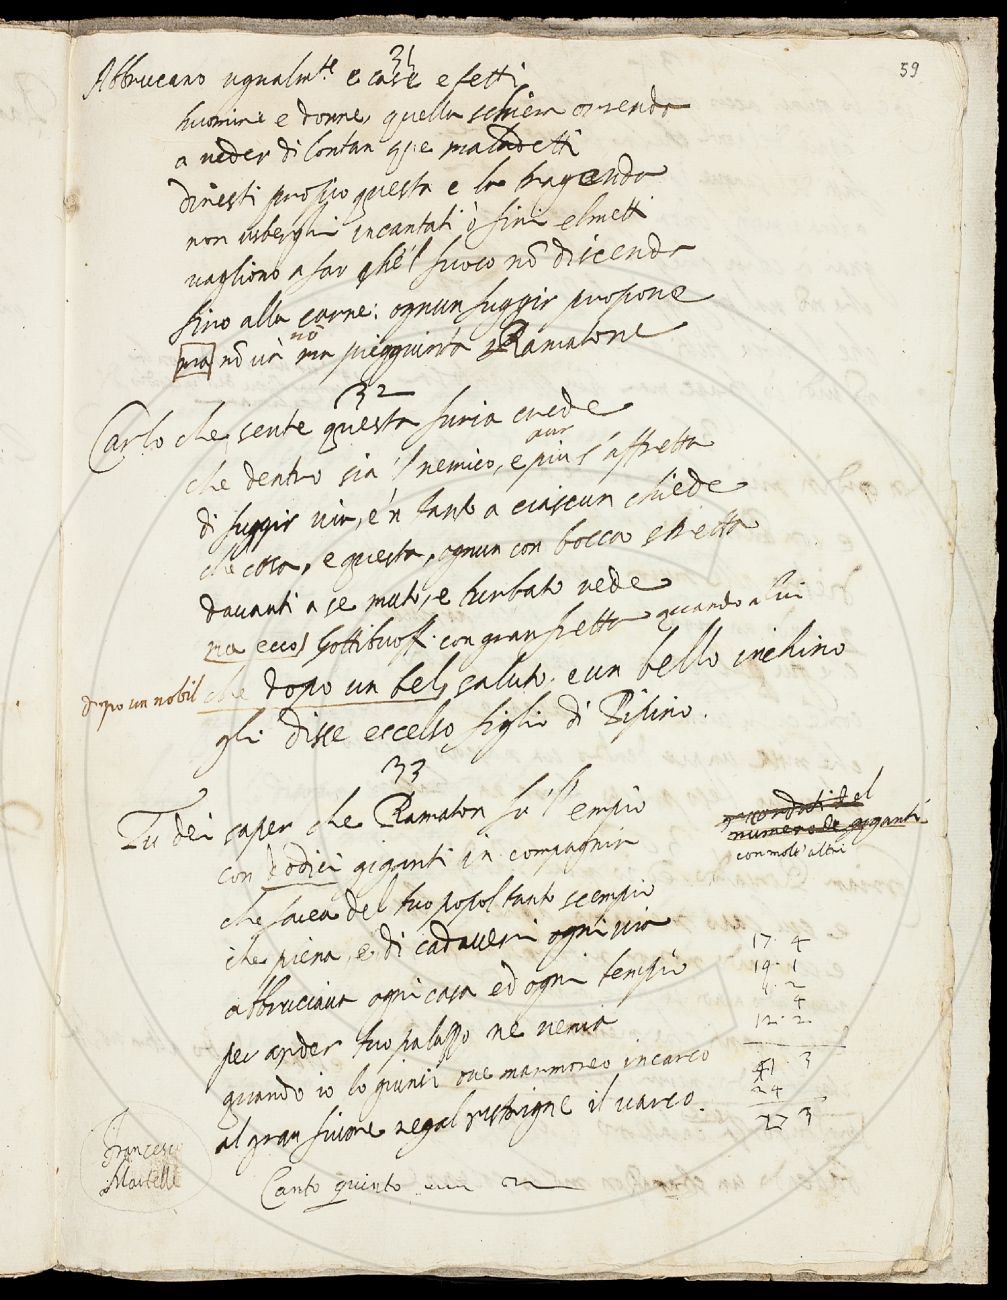 59
31
Abbruciano ugualm.te e case e tetti
huomini e donne, quella schiera orrenda
a veder di lontan que maladetti
diresti proprio questa e la tregenda
non usberghi incantati ò fini elmetti
vagliono a far che'l fuoco nõ discenda
fino alla carne: ognun fuggir propone
ma nõ và nõ ma Ramatone
32
Carlo che sente questa furia crede
che dentro sia 'l nemico, e piu s'affretta
di fuggir via, e'n tanto a ciascun chiede
che cosa, e questa, ognun con bocca stretta
davanti a se muto, e turbato vede
ma ecco Gottibuoff con gran fretta quando a lui
dopo un nobil che dopo un bel saluto e un bello inchino
gli disse eccelso figlio di Pipino.
33
Tu dei saper che Ramaton su 'l empio
con dodici giganti in compagnia
che facea del tuo popol tanto scempio
che piena, e di cadaveri ogni via
abbruciava ogni casa ed ogni tempio
per arder tuo palazzo ne venia
quando io lo giunsi ove marmoreo incarco
al gran fiume regal ristrigne il varco.
Canto quinto
ricordati del
numero de giganti
con molt' altri
17. 4
19. 1
4. 2
4
12. 2
41. 3
24
27 3
Francesco
Martelli